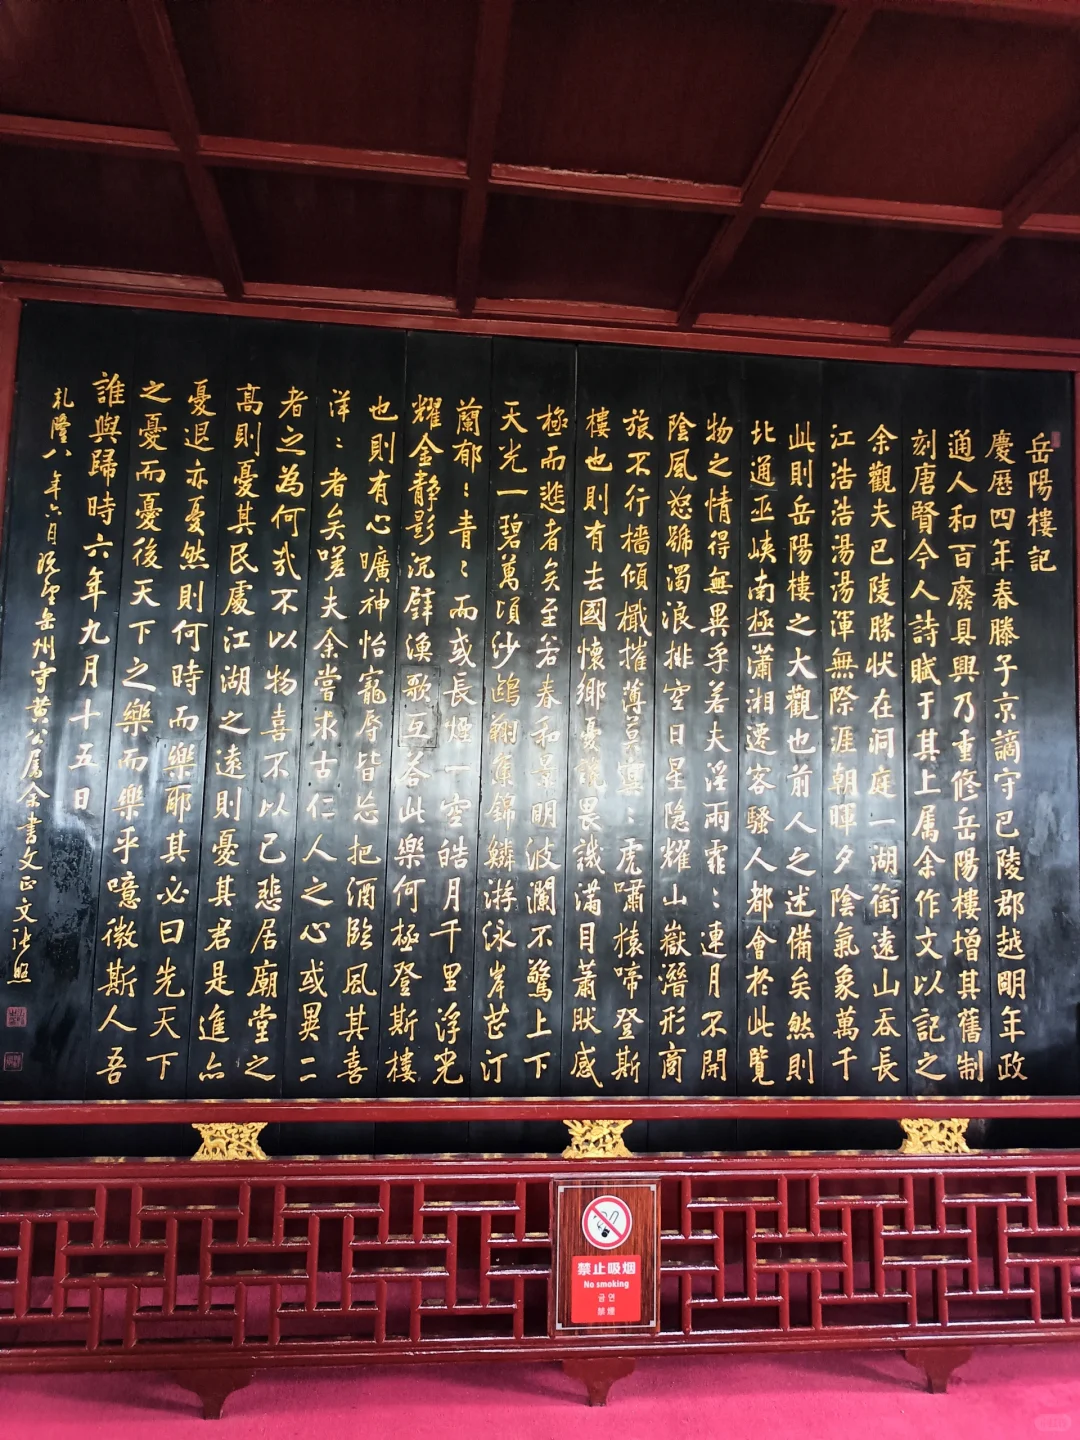 岳陽樓記
慶歷四年春滕子京謫守巴陵郡越明年政
通人和百廢具興乃重修岳陽樓增其舊制
刻唐賢今人詩賦于其上属余作文以記之
余觀夫巴陵勝狀在洞庭一湖銜遠山吞長
江浩浩湯湯渾無際涯朝暉夕陰氣象萬千
此則岳陽樓之大觀也前人之述備矣然則
北通巫峽南極瀟湘遷客騷人都會於此覽
物之情得無異乎若夫淫雨霏〻連月不開
陰風怒號濁浪排空日星隱耀山嶽潛形商
旅不行檣傾檝摧薄莫冥〻虎嘯猿啼登斯
樓也則有去國懷鄉憂讒畏譏滿目蕭然感
極而悲者矣至若春和景明波瀾不驚上下
天光一碧萬頃沙鷗翔集錦鱗游泳岸芷汀
蘭郁〻青〻而或長煙一空皓月千里浮光
耀金靜影沉璧漁歌互答此樂何極登斯樓
也則有心曠神怡寵辱皆忘把酒臨風其喜
洋〻者矣嗟夫余嘗求古仁人之心或異二
者之為何哉不以物喜不以己悲居廟堂之
高則憂其民處江湖之遠則憂其君是進亦
憂退亦憂然則何時而樂耶其必曰先天下
之憂而憂後天下之樂而樂乎噫微斯人吾
誰與歸時六年九月十五日
乾隆八年六月既望岳州守黄公属余書文正文張照
禁止吸烟
No smoking
금연
禁煙